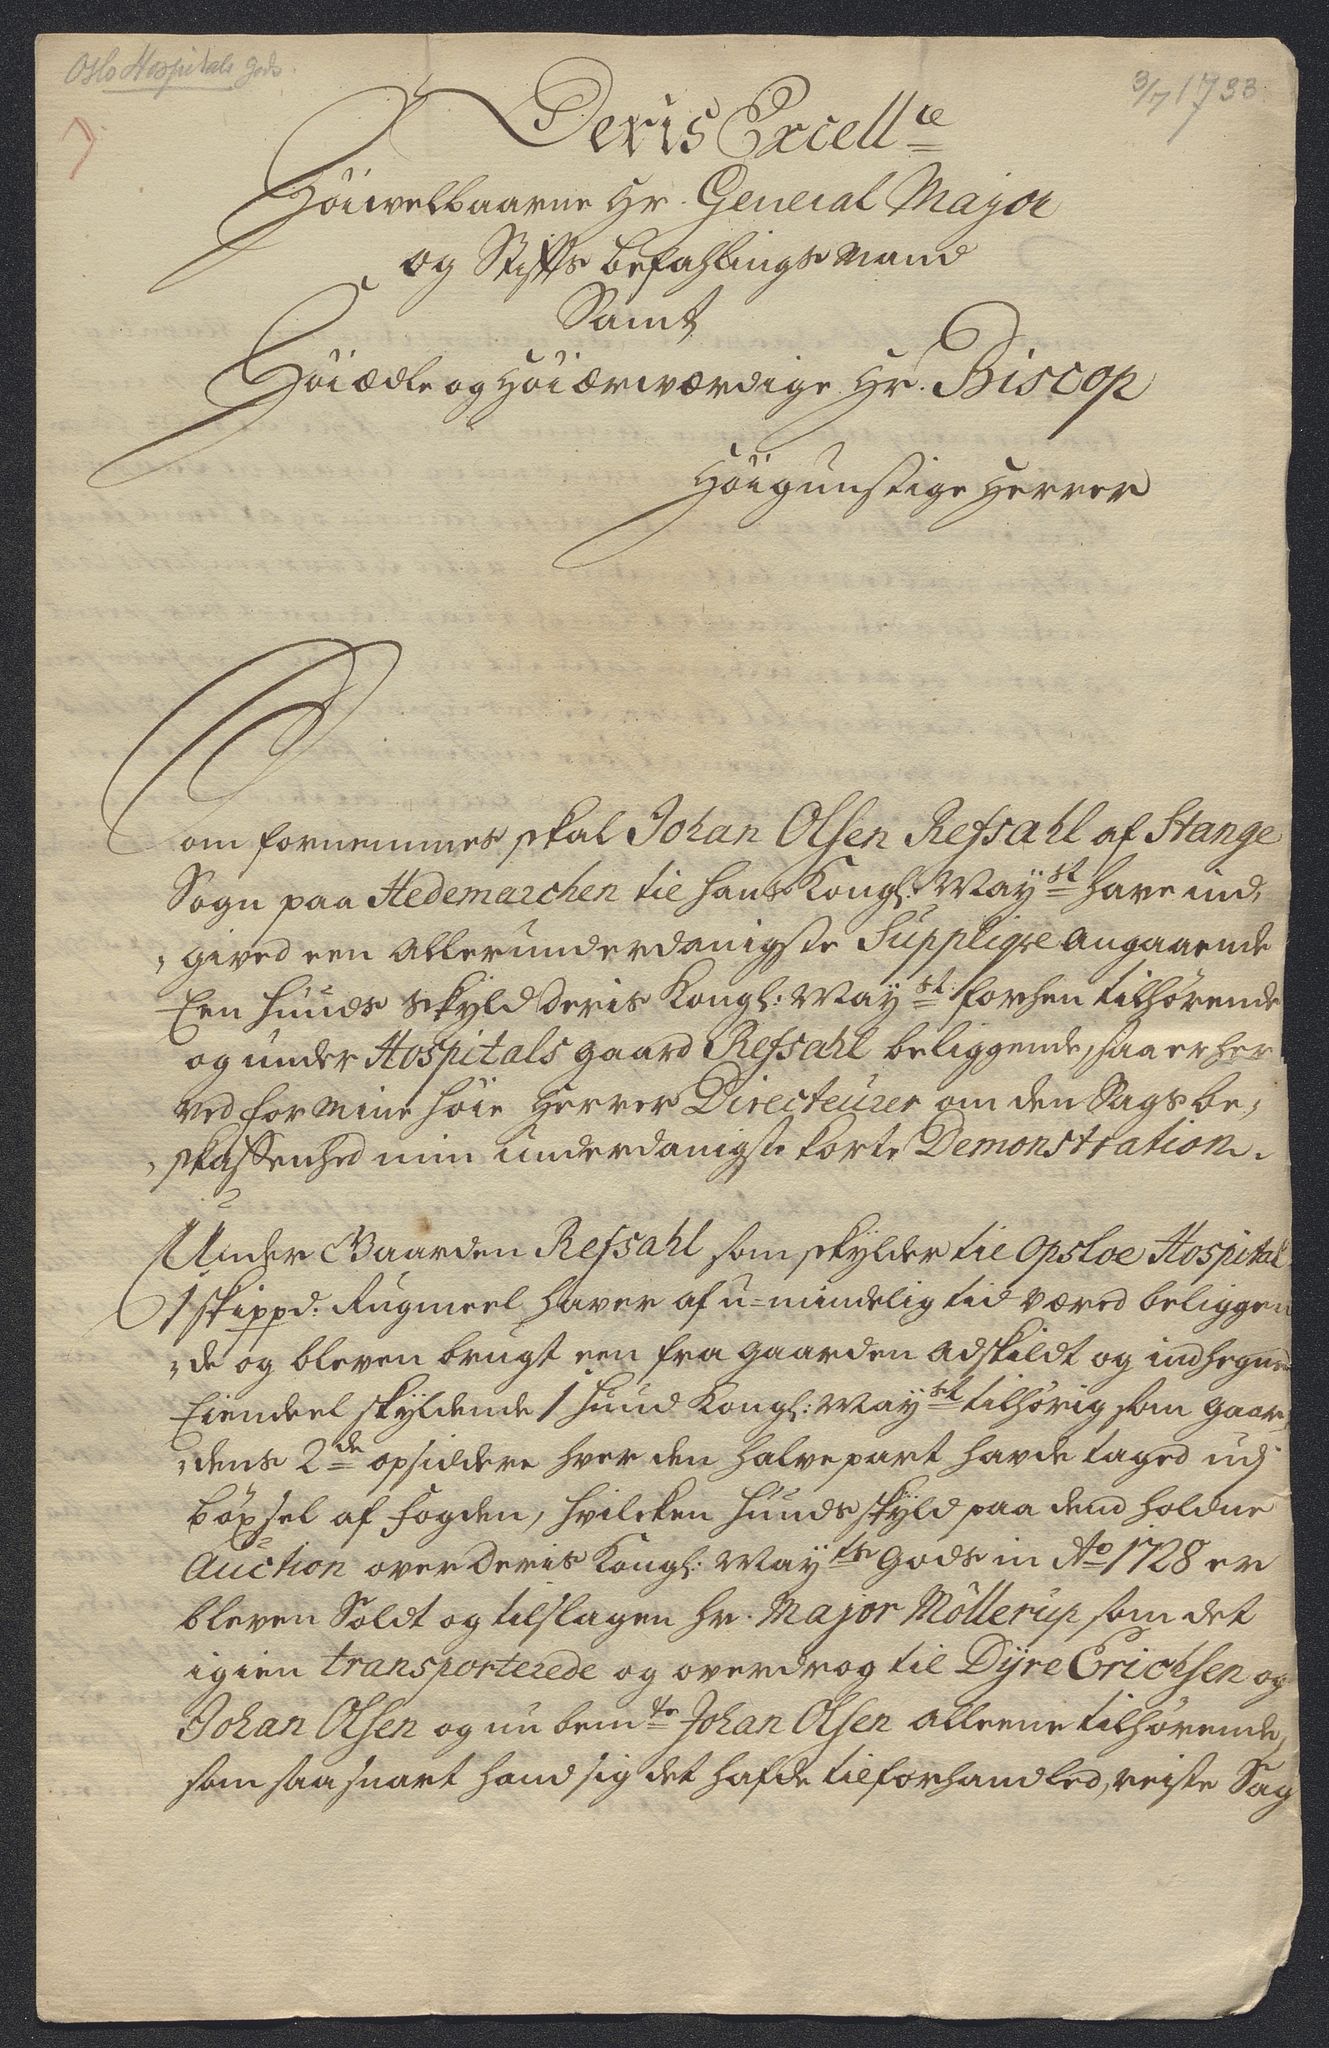 Oslo Hospitals gods.
3/7 1733.
Deris Excell^ce
Höiwelbaarne Hr. General Major
og Stiffts befahlings Mand
Samt
Höiædle og Höiærwærdige Hr. Biscop
Höigunstige Herrer
Som fornemmes skal Johan Olsen Refsahl af Stange
Sogn paa Hedemarchen til hans Kongl: May^st have ind,
,gived een allerunderdanigste Supplique angaaende
Een Huuds Skyld Deris Kongl: May^st: forhen tilhörende
og under Hospitals gaard Refsahl beliggende, saa er her
ved for mine höie Herrer Directeurer om den Sags be,
,skaffenhed min underdanigste korte Demonstration.
Under Gaarden Refsahl som skylder til Opsloe Hospital
1 skippd: Rugmeel haver af u=mindelig tid været beliggen
,de og bleven brugt een fra gaarden adskildt og indhegned
Eiendeel skyldende 1 huud Kongl: May^st tilhörig som gaar,
,dens 2^de opsiddere hver den halve part havde taged udj
böxsel af Fogden, hvilcken huuds skyld paa dend holdne
Auction over Deris Kongl: May^ts Gods in A^o 1728 er
bleven Soldt og tilslagen hr. Major Möllerup som det
igien transporterede og overdrog til Dyre Erichsen og
Johan Olsen og nu bem^te Johan Olsen alleene tilhörende,
som saa snart hand sig det hafde tilforhandled, reiste Sag